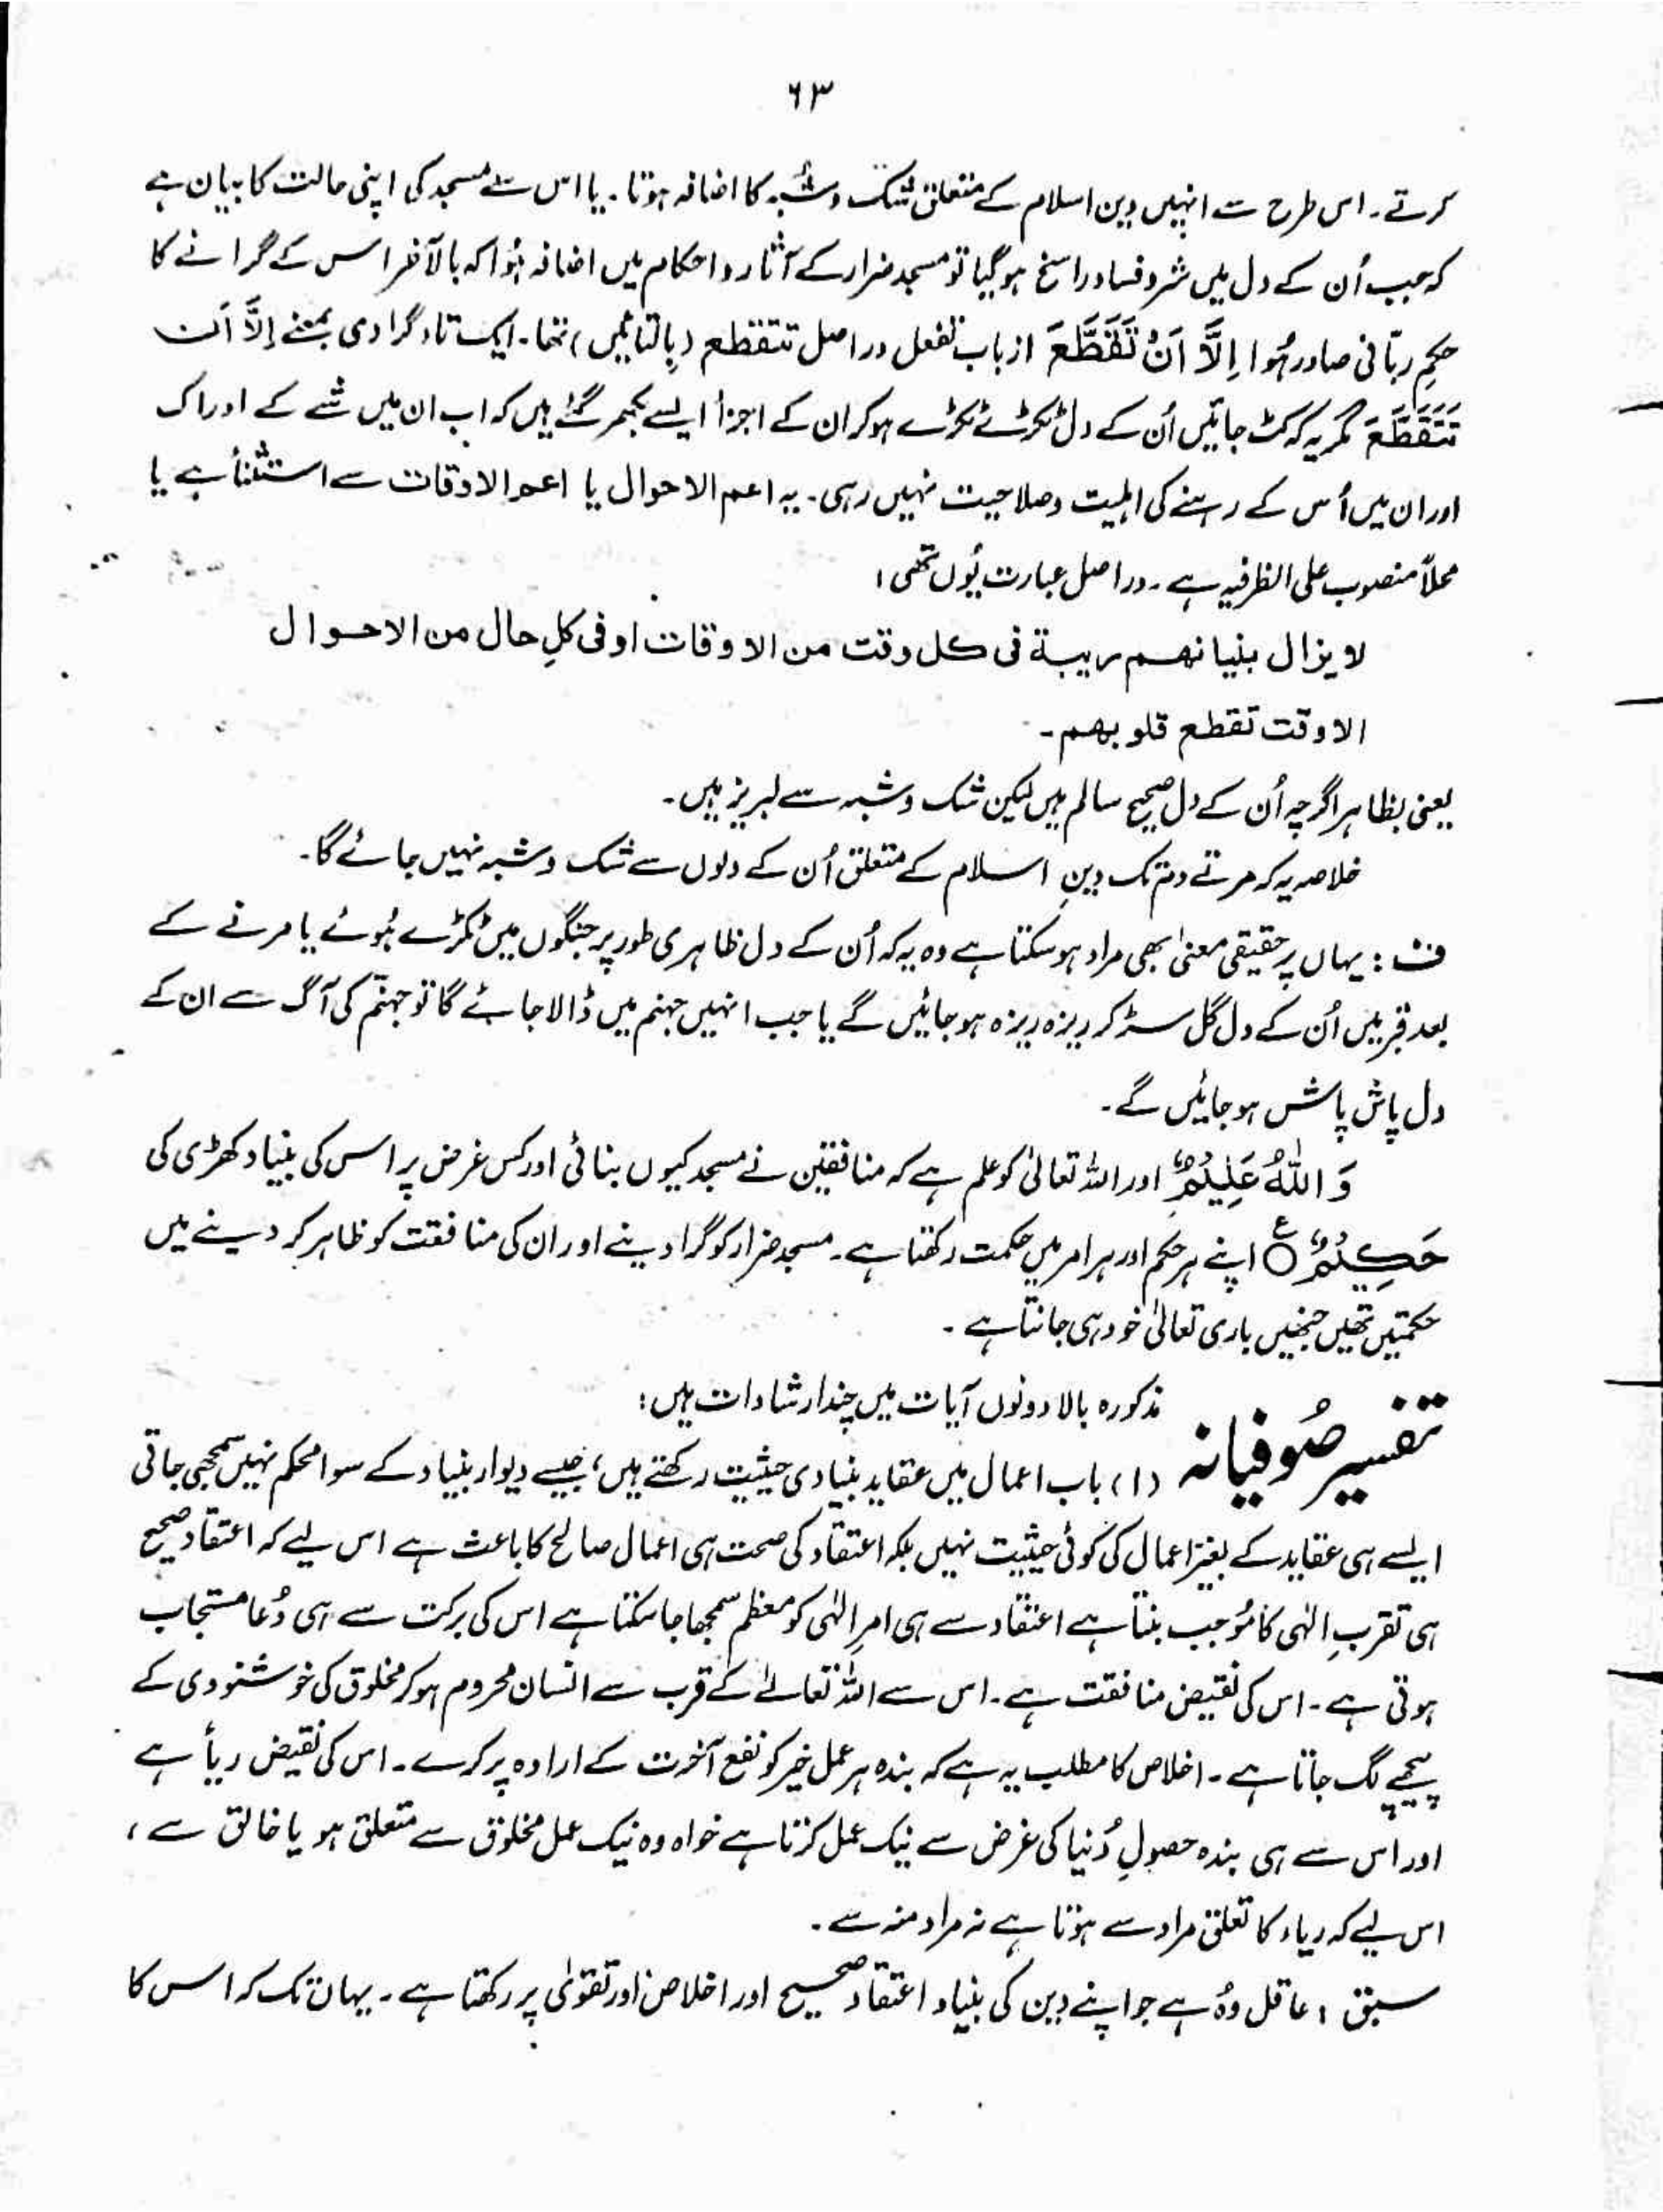 ٦٣
کرتے۔ اس طرح سے انہیں دین اسلام کے متعلق شک و شبہ کا اضافہ ہوتا۔ یا اس سے مسجد کی اپنی حالت کا بیان ہے
کہ جب اُن کے دل میں شر و فساد راسخ ہو گیا تو مسجد ضرار کے آثار و احکام میں اضافہ ہُوا کہ بالآخر اس کے گرانے کا
حکمِ ربّانی صادر ہُوا اِلَّآ اَنْ تَقَطَّعَ از باب تفعل دراصل تتقطع (بالتائیں) تھا۔ ایک تاء گرا دی بمعنے اِلَّا اَن
تَتَقَطَّعَ مگر یہ کہ کٹ جائیں اُن کے دل ٹکڑے ٹکڑے ہو کر ان کے اجزأ ایسے بکھر گئے ہیں کہ اب ان میں شے کے ادراک
اور ان میں اُس کے رہنے کی اہلیت و صلاحیت نہیں رہی۔ یہ اعم الاحوال یا اعم الاوقات سے استثنأ ہے یا
محلاً منصوب علی الظرفیہ ہے۔ دراصل عبارت یُوں تھی:
لا یزال بنیانهم ریبة فی کل وقت من الاوقات او فی کلِ حال من الاحوال
الا وقت تقطع قلوبهم۔
یعنی بظاہر اگرچہ اُن کے دل صحیح سالم ہیں لیکن شک و شبہ سے لبریز ہیں۔
خلاصہ یہ کہ مرتے دم تک دینِ اسلام کے متعلق اُن کے دلوں سے شک و شبہ نہیں جائے گا۔
ف : یہاں پر حقیقی معنیٰ بھی مراد ہو سکتا ہے وہ یہ کہ اُن کے دل ظاہری طور پر جنگوں میں ٹکڑے ہُوئے یا مرنے کے
بعد قبر میں اُن کے دل گل سڑ کر ریزہ ریزہ ہو جائیں گے یا جب انہیں جہنم میں ڈالا جائے گا تو جہنّم کی آگ سے ان کے
دل پاش پاش ہو جائیں گے۔
وَ اللّٰہُ عَلِیْمٌ اور اللہ تعالیٰ کو علم ہے کہ منافقین نے مسجد کیوں بنائی اور کس غرض پر اس کی بنیاد کھڑی کی
حَکِیْمٌ ○ ع اپنے ہر حکم اور ہر امر میں حکمت رکھتا ہے۔ مسجد ضرار کو گرا دینے اور ان کی منافقت کو ظاہر کر دینے میں
حکمتیں تھیں جنھیں باری تعالیٰ خود ہی جانتا ہے ۔
مذکورہ بالا دونوں آیات میں چند ارشادات ہیں:
تفسیر صُوفیانہ (۱) باب اعمال میں عقاید بنیادی حیثیت رکھتے ہیں، جیسے دیوار بنیاد کے سوا محکم نہیں سمجھی جاتی
ایسے ہی عقاید کے بغیر اعمال کی کوئی حیثیت نہیں بلکہ اعتقاد کی صحت ہی اعمال صالح کا باعث ہے اس لیے کہ اعتقاد صحیح
ہی تقربِ الٰہی کا مُوجب بنتا ہے اعتقاد سے ہی امرِ الٰہی کو معظم سمجھا جا سکتا ہے اس کی برکت سے ہی دُعا مستجاب
ہوتی ہے۔ اس کی نقیض منافقت ہے۔ اس سے اللہ تعالیٰ کے قرب سے انسان محروم ہو کر مخلوق کی خوشنودی کے
پیچھے لگ جاتا ہے۔ اخلاص کا مطلب یہ ہے کہ بندہ ہر عمل خیر کو نفع آخرت کے ارادہ پر کرے۔ اس کی نقیض ریأ ہے
اور اس سے ہی بندہ حصولِ دُنیا کی غرض سے نیک عمل کرتا ہے خواہ وہ نیک عمل مخلوق سے متعلق ہو یا خالق سے،
اس لیے کہ ریاء کا تعلق مراد سے ہوتا ہے نہ مراد منہ سے۔
سبق : عاقل وُہ ہے جو اپنے دین کی بنیاد اعتقاد صحیح اور اخلاص اور تقویٰ پر رکھتا ہے۔ یہاں تک کہ اس کا